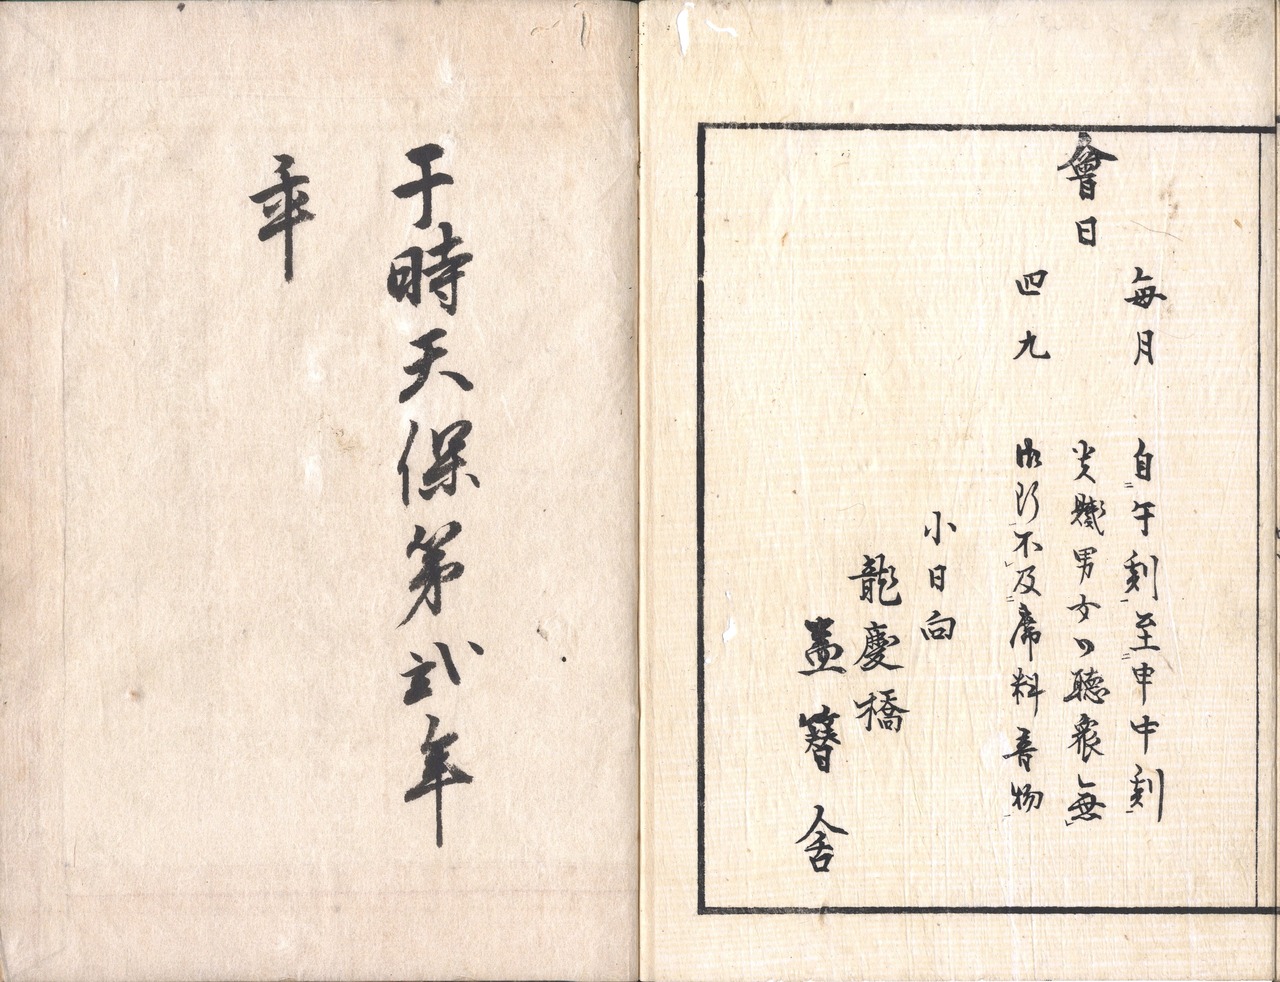 會日
毎月
四九
自午刻至申中刻
貴賤男女ノ聴衆無
御断不及席料音物
小日向
龍慶橋
盍簪舎
于時天保第弐年
年